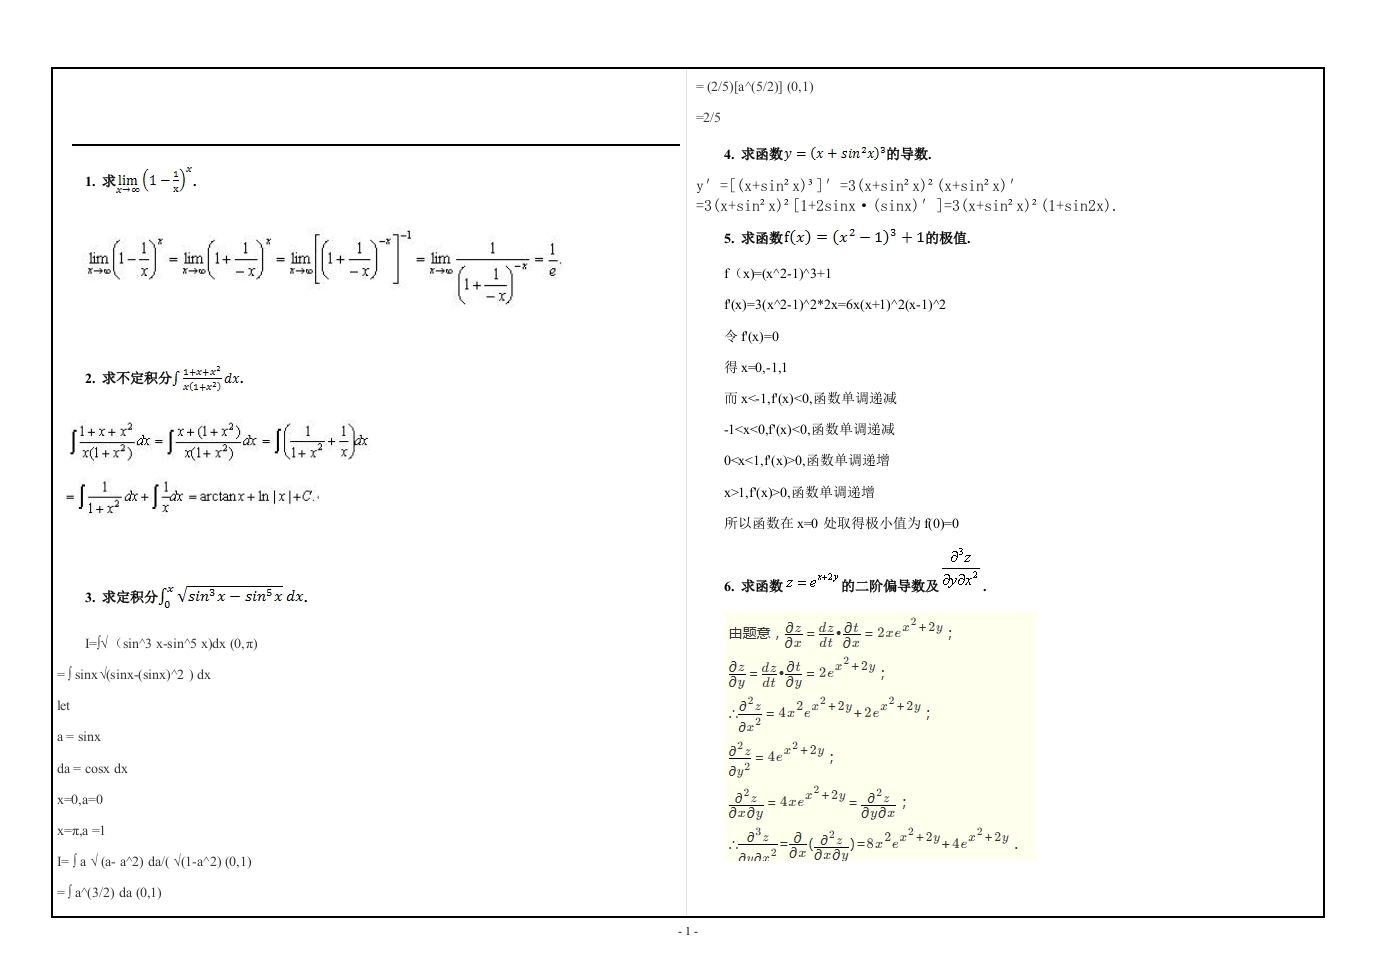 1. 求lim x→∞ (1 − 1/x)^x.
lim x→∞ (1 − 1/x)^x = lim x→∞ (1 + 1/(−x))^x = lim x→∞ [(1 + 1/(−x))^(−x)]^(−1) = lim x→∞ 1/(1 + 1/(−x))^(−x) = 1/e.
2. 求不定积分∫ (1+x+x²)/(x(1+x²)) dx.
∫ (1+x+x²)/(x(1+x²)) dx = ∫ (x+(1+x²))/(x(1+x²)) dx = ∫ (1/(1+x²) + 1/x) dx
= ∫ 1/(1+x²) dx + ∫ 1/x dx = arctanx + ln|x| + C.
3. 求定积分∫₀ˣ √(sin³x − sin⁵x) dx.
I=∫√（sin^3 x-sin^5 x)dx (0,π)
= ∫ sinx √(sinx-(sinx)^2 ) dx
let
a = sinx
da = cosx dx
x=0,a=0
x=π,a =1
I= ∫ a √ (a- a^2) da/( √(1-a^2) (0,1)
= ∫ a^(3/2) da (0,1)
= (2/5)[a^(5/2)] (0,1)
=2/5
4. 求函数y = (x + sin²x)³的导数.
y′ =[(x+sin² x)³ ]′ =3(x+sin² x)² (x+sin² x)′
=3(x+sin² x)² [1+2sinx·(sinx)′ ]=3(x+sin² x)² (1+sin2x).
5. 求函数f(x) = (x² − 1)³ + 1的极值.
f（x)=(x^2-1)^3+1
f'(x)=3(x^2-1)^2*2x=6x(x+1)^2(x-1)^2
令 f'(x)=0
得 x=0,-1,1
而 x<-1,f'(x)<0,函数单调递减
-1<x<0,f'(x)<0,函数单调递减
0<x<1,f'(x)>0,函数单调递增
x>1,f'(x)>0,函数单调递增
所以函数在 x=0 处取得极小值为 f(0)=0
6. 求函数 z = e^(x+2y) 的二阶偏导数及 ∂³z/∂y∂x² .
由题意，∂z/∂x = dz/dt•∂t/∂x = 2xe^(x²+2y)；
∂z/∂y = dz/dt•∂t/∂y = 2e^(x²+2y)；
∴∂²z/∂x² = 4x²e^(x²+2y)+2e^(x²+2y)；
∂²z/∂y² = 4e^(x²+2y)；
∂²z/∂x∂y = 4xe^(x²+2y) = ∂²z/∂y∂x；
∴∂³z/∂y∂x² = ∂/∂x(∂²z/∂x∂y) = 8x²e^(x²+2y)+4e^(x²+2y).
- 1 -